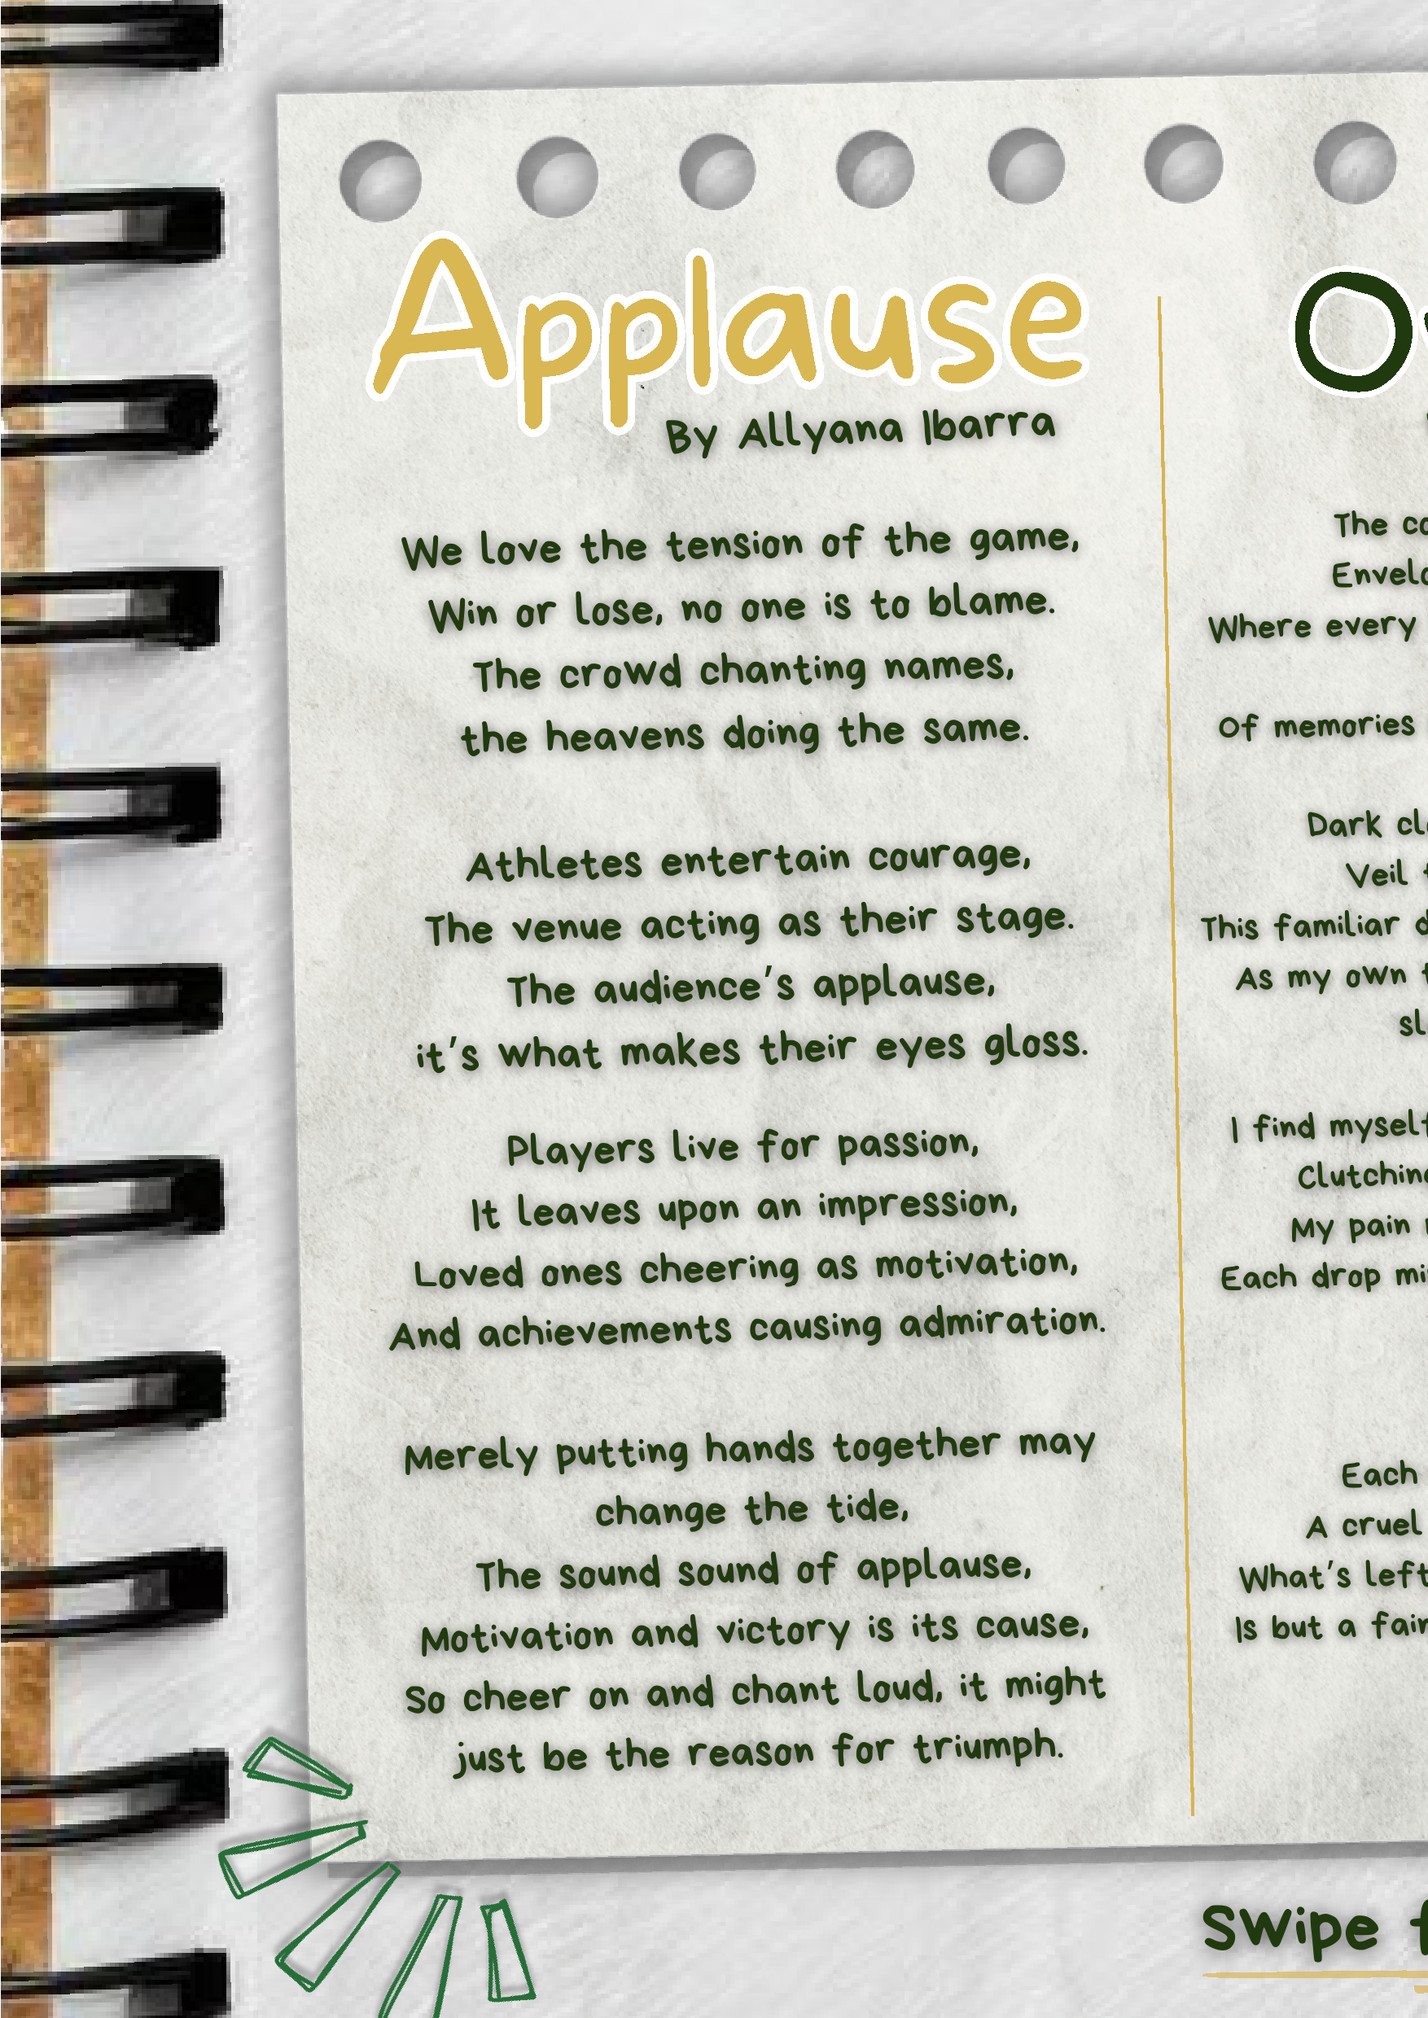 Applause
By Allyana Ibarra
We love the tension of the game,
Win or lose, no one is to blame.
The crowd chanting names,
the heavens doing the same.
Athletes entertain courage,
The venue acting as their stage.
The audience's applause,
it's what makes their eyes gloss.
Players live for passion,
It leaves upon an impression,
Loved ones cheering as motivation,
And achievements causing admiration.
Merely putting hands together may
change the tide,
The sound sound of applause,
Motivation and victory is its cause,
So cheer on and chant loud, it might
just be the reason for triumph.
The
Where every
Of memories
Dark
Veil
This familiar
As my own
I find myself
My pain
Each drop
Each
A cruel
What's left
Is but a
Swipe